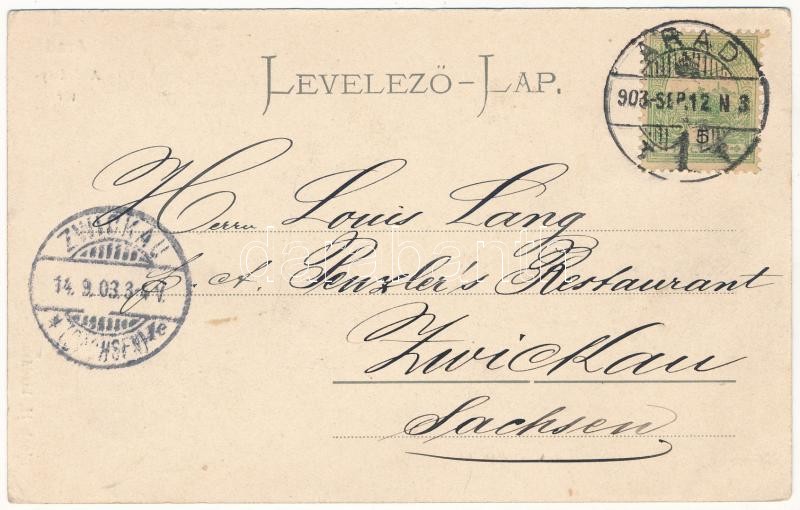 LEVELEZŐ-LAP.
ARAD
903 SEP. 12 N 3
5
1
Herrn Louis Lang
p. A. Penzler's Restaurant
Zwickau
Sachsen
ZWICKAU
14. 9. 03. 3-4 V.
* (SACHSEN) 1e
darabanth